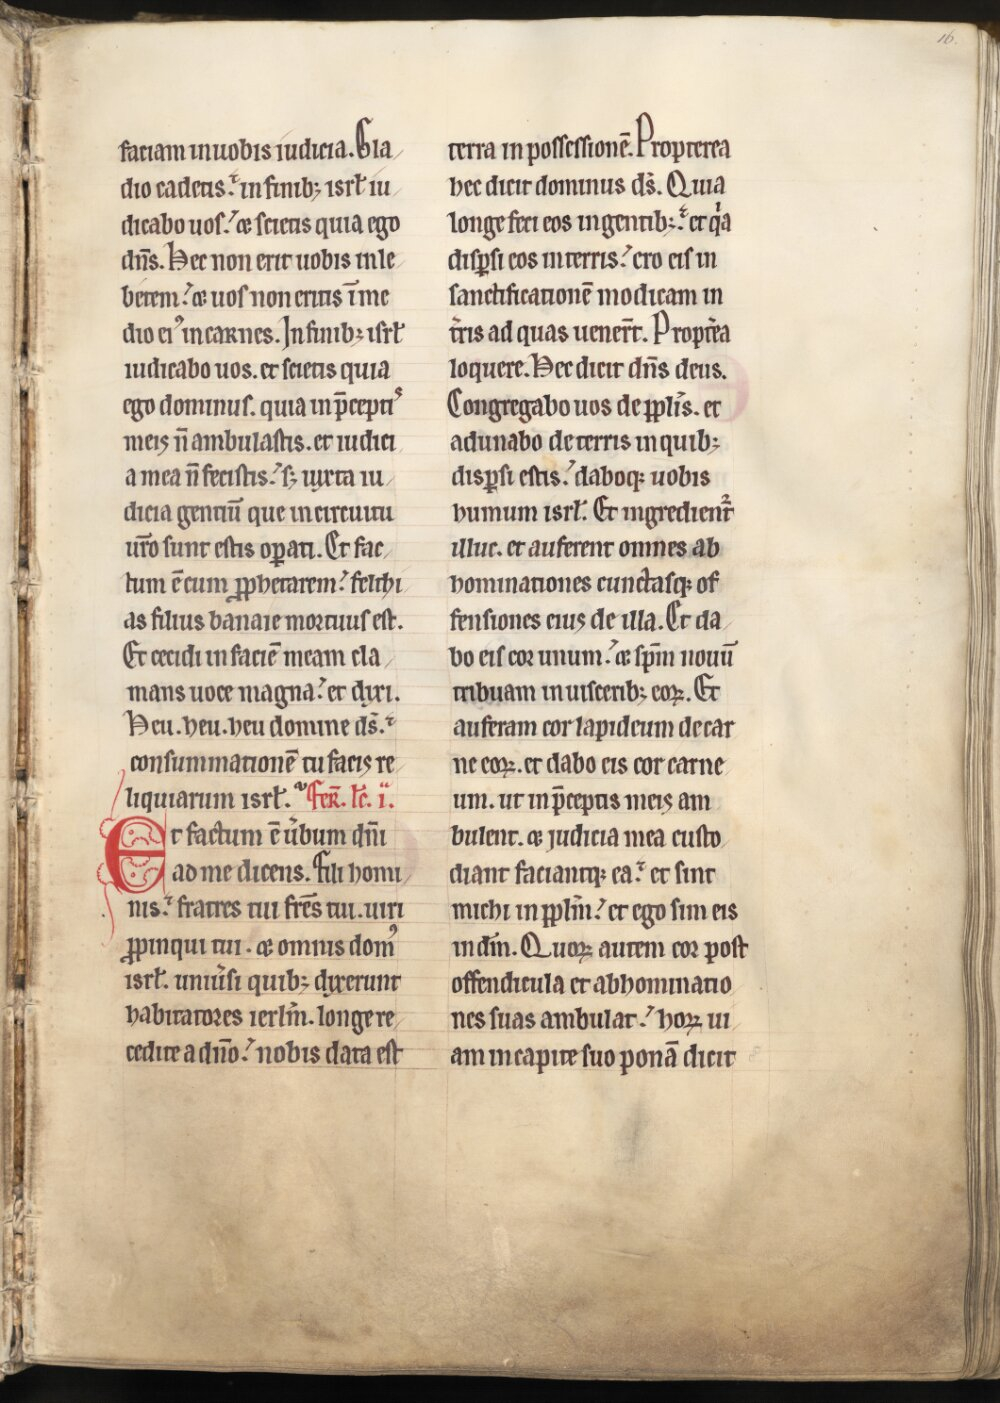 16.
faciam in uobis iudicia. Gla
dio cadetis. in finib; isrł iu
dicabo uos. & scietis quia ego
dn̄s. Hec non erit uobis in le
betem. & uos non eritis ī me
dio ei᾿ in carnes. In finib; isrł
iudicabo uos. et scietis quia
ego dominus. quia in p̄cepti᷒
meis n̄ ambulastis. et iudici
a mea n̄ fecistis. s; iuxta iu
dicia gentiū que in circuitu
ur̄o sunt estis oꝑati. Et fac
tum ē cum ꝓphetarem. felthi
as filius banaie mortuus est.
Et cecidi in faciē meam cla
mans uoce magna. et dixi.
Heu. heu. heu domine ds̄.
consummationē tu facis re
liquiarum isrł. Fer̄. lc̄. ii.
Et factum ē u̾bum dn̄i
ad me dicens. Fili homi
nis. fratres tui fr̄es tui. uiri
ꝓpinqui tui. & omnis dom᾿
isrł. uniu̾si quib; dixerunt
habitatores ierlm̄. longe re
cedite a dn̄o. nobis data est
terra in possessionē. Propterea
hec dicit dominus ds̄. Quia
longe feci eos in gentib;. et qͥa
disꝑsi eos in terris. ero eis in
sanctificationē modicam in
t̾ris ad quas uener̄t. Propt̾ea
loquere. Hec dicit dn̄s deus.
Congregabo uos de ppl̄is. et
adunabo de terris in quib;
disꝑsi estis. daboq; uobis
humum isrł. Et ingredient᷑
illuc. et auferent omnes ab
hominationes cunctasq; of
fensiones eius de illa. Et da
bo eis cor unum. & sp̄m nouū
tribuam in uiscerib; eoꝝ. Et
auferam cor lapideum de car
ne eoꝝ. et dabo eis cor carne
um. ut in p̄ceptis meis am
bulent. & judicia mea custo
diant faciantq; ea. et sint
michi in ppl̄m. et ego sim eis
in dm̄. Quoꝝ autem cor post
offendicula et abhominatio
nes suas ambulat. hoꝝ ui
am in capite suo ponā dicit